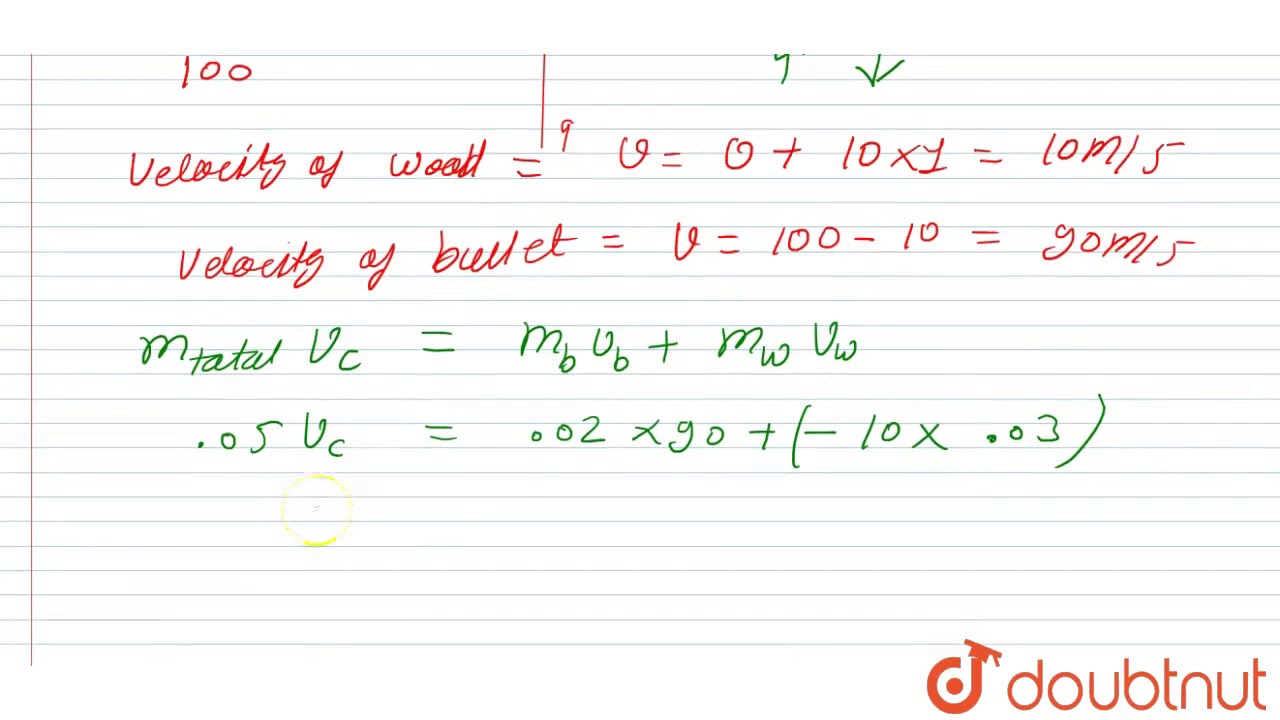 100
velocity of wood = v = 0 + 10×1 = 10m/s
velocity of bullet = v = 100 - 10 = 90m/s
mtatal vc = mb vb + mw vw
.05 vc = .02 × 90 + (- 10 × .03)
doubtnut